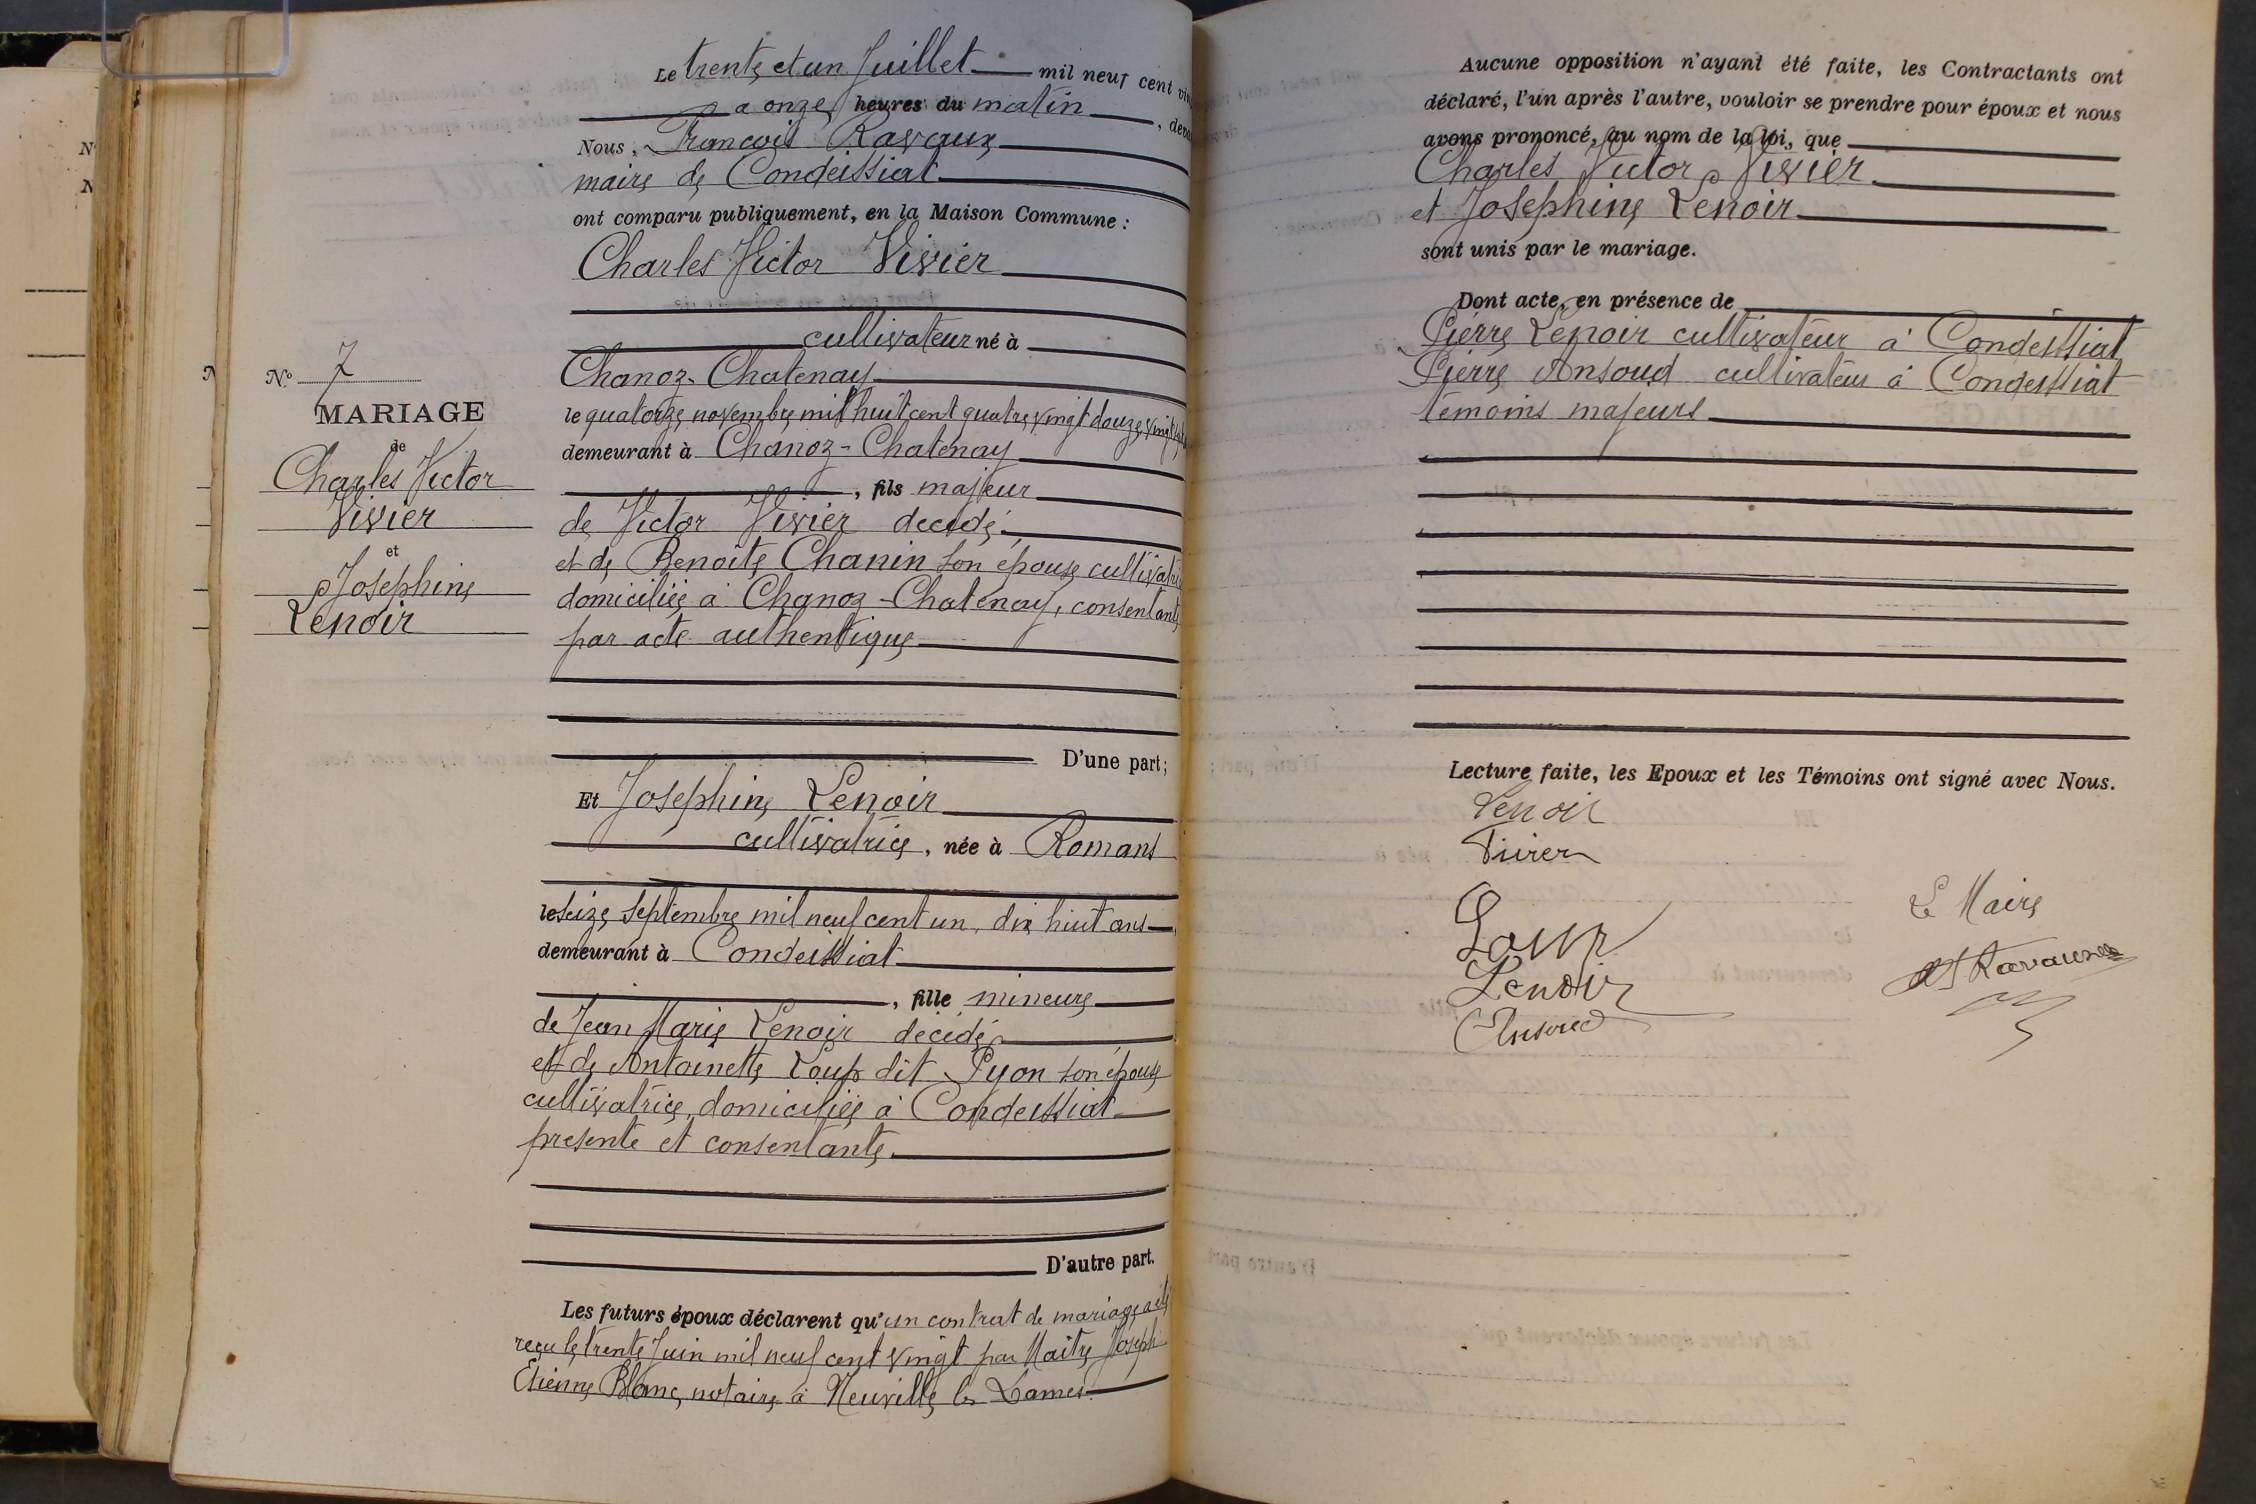 Le trente et un Juillet mil neuf cent vin
a onze heures du matin, deva
Nous, François Ravaux
maire de Condeissiat
ont comparu publiquement, en la Maison Commune :
Charles Victor Vivier
cultivateur né à
Chanoz-Chatenay
le quatorze novembre mil huit cent quatre vingt douze, vingt sept
demeurant à Chanoz-Chatenay
, fils majeur
de Victor Vivier decedé
et de Benoite Chanin son épouse cultivatrice
domiciliée à Chanoz-Chatenay, consentante
par acte authentique
D'une part;
Et Josephine Lenoir
cultivatrice, née à Romans
le seize septembre mil neuf cent un, dix huit ans
demeurant à Condeissiat
, fille mineure
de Jean Marie Lenoir decédé
et de Antoinette Loup dit Pyon son épouse
cultivatrice, domiciliée à Condeissiat
presente et consentante.
D'autre part.
Les futurs époux déclarent qu'un contrat de mariage a été
reçu le trente Juin mil neuf cent vingt par Maitre Joseph
Etienne Blanc, notaire à Neuville les Dames
N.o 7
MARIAGE
de
Charles Victor
Vivier
et
Josephine
Lenoir
Aucune opposition n'ayant été faite, les Contractants ont
déclaré, l'un après l'autre, vouloir se prendre pour époux et nous
avons prononcé, au nom de la loi, que
Charles Victor Vivier
et Josephine Lenoir
sont unis par le mariage.
Dont acte, en présence de
Pierre Lenoir cultivateur à Condeissiat
Pierre Ansoud cultivateur à Condeissiat
témoins majeurs
Lecture faite, les Epoux et les Témoins ont signé avec Nous.
Lenoir
Vivier
Loup
Lenoir
Ansoud
Le Maire
Ravaux